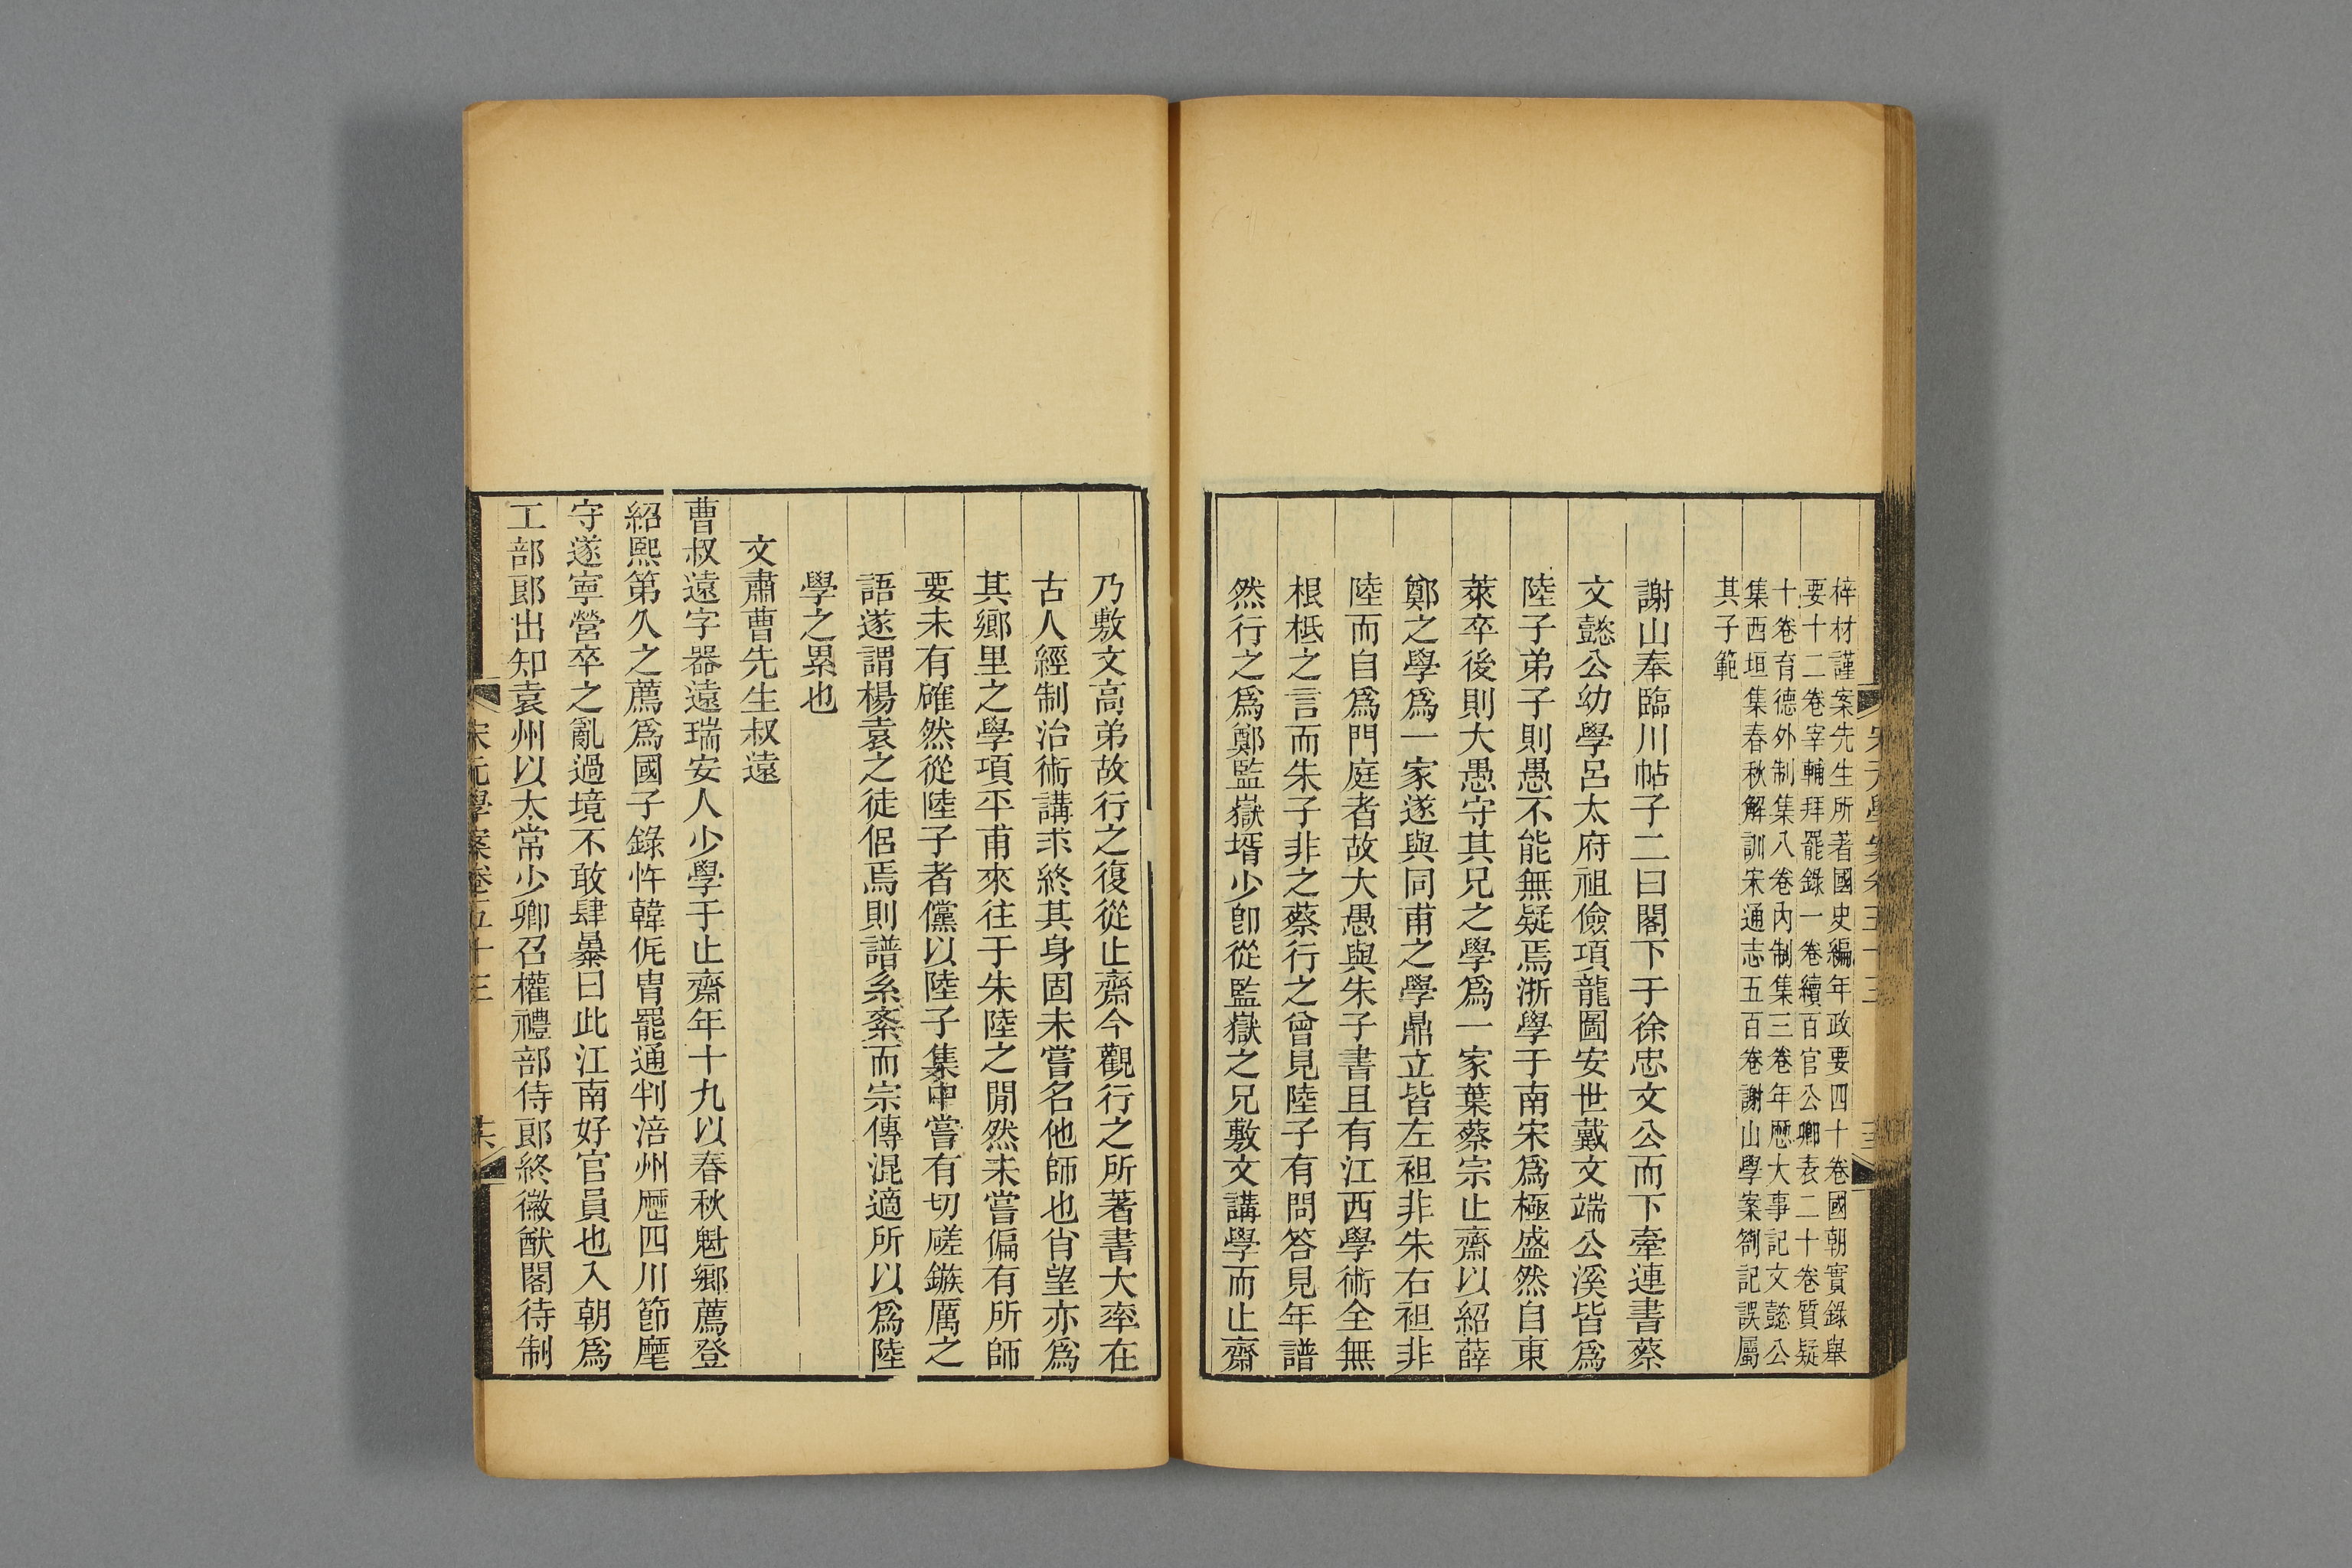 梓材謹案先生所著國史編年政要四十卷國朝實錄舉
要十二卷宰輔拜罷錄一卷續百官公卿表二十卷質疑
十卷育德外制集八卷內制集三卷年歷大事記文懿公
集西垣集春秋解訓宋通志五百卷謝山學案劄記誤屬
其子範
謝山奉臨川帖子二曰閣下于徐忠文公而下牽連書蔡
文懿公幼學呂太府祖儉項龍圖安世戴文端公溪皆爲
陸子弟子則愚不能無疑焉浙學于南宋爲極盛然自東
萊卒後則大愚守其兄之學爲一家葉蔡宗止齋以紹薛
鄭之學爲一家遂與同甫之學鼎立皆左袒非朱右袒非
陸而自爲門庭者故大愚與朱子書且有江西學術全無
根柢之言而朱子非之蔡行之曾見陸子有問答見年譜
然行之爲鄭監嶽壻少卽從監嶽之兄敷文講學而止齋
乃敷文高弟故行之復從止齋今觀行之所著書大率在
古人經制治術講求終其身固未嘗名他師也肖望亦爲
其鄉里之學項平甫來往于朱陸之閒然未嘗偏有所師
要未有確然從陸子者儻以陸子集中嘗有切磋鏃厲之
語遂謂楊袁之徒侶焉則譜系紊而宗傳混適所以爲陸
學之累也
文肅曹先生叔遠
曹叔遠字器遠瑞安人少學于止齋年十九以春秋魁鄉薦登
紹熙第久之薦爲國子錄忤韓侂胄罷通判涪州歷四川節麾
守遂寧營卒之亂過境不敢肆暴曰此江南好官員也入朝爲
工部郎出知袁州以太常少卿召權禮部侍郎終徽猷閣待制
宋元學案卷五十三